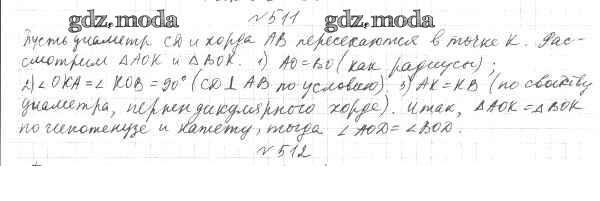 gdz.moda №511 gdz.moda
Пусть диаметр CD и хорда AB пересекаются в точке K. Рас-
смотрим △AOK и △BOK. 1) AO=BO (как радиусы);
2) ∠OKA=∠KOB=90° (CD⊥AB по условию). 3) AK=KB (по свойству
диаметра, перпендикулярного хорде). Итак, △AOK=△BOK
по гипотенузе и катету, тогда ∠AOD=∠BOD.
№512